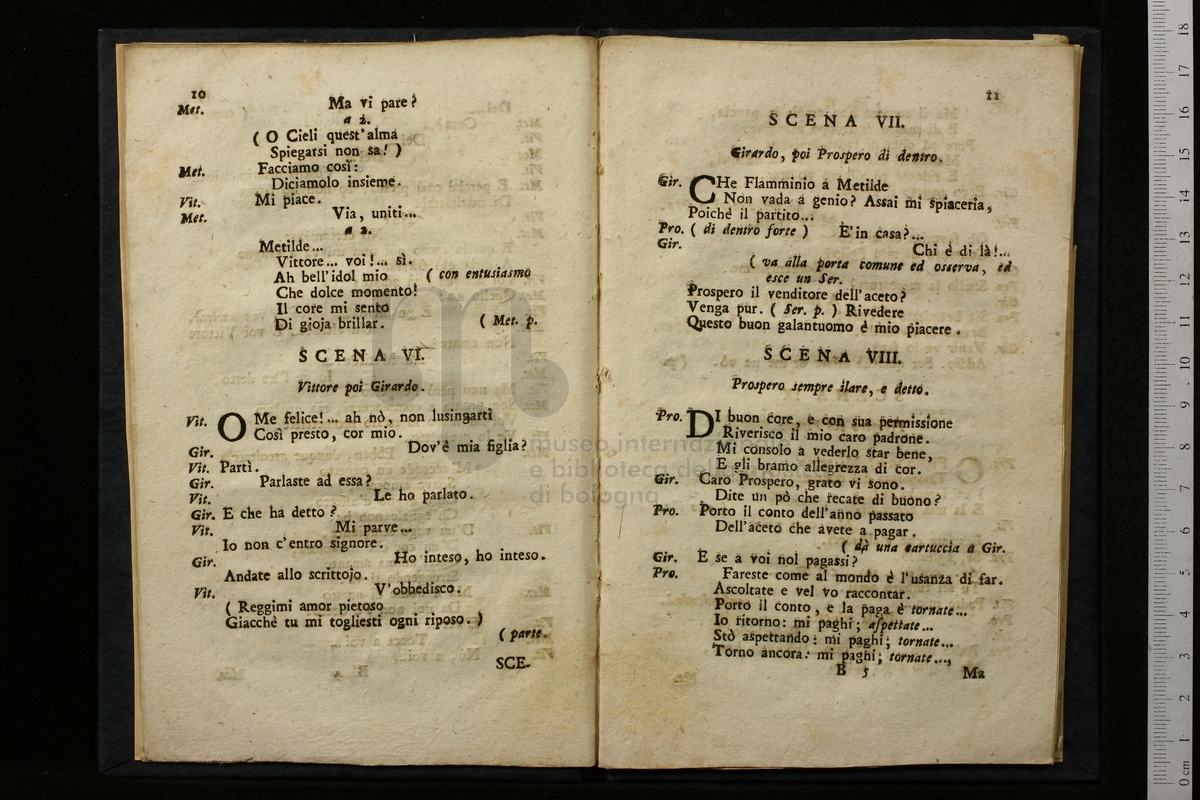 10
Met.
Ma vi pare?
a 2.
( O Cieli quest'alma
Spiegarsi non sa! )
Met. Facciamo così:
Diciamolo insieme.
Vit. Mi piace.
Met. Via, uniti...
a 2.
Metilde...
Vittore... voi!... sì.
Ah bell'idol mio ( con entusiasmo
Che dolce momento!
Il core mi sento
Di gioja brillar. ( Met. p.
SCENA VI.
Vittore poi Girardo.
Vit. O Me felice!... ah nò, non lusingarti
Così presto, cor mio.
Gir. Dov'è mia figlia?
Vit. Partì.
Gir. Parlaste ad essa?
Vit. Le ho parlato.
Gir. E che ha detto?
Vit. Mi parve...
Io non c'entro signore.
Gir. Ho inteso, ho inteso.
Andate allo scrittojo.
Vit. V'obbedisco.
( Reggimi amor pietoso
Giacchè tu mi togliesti ogni riposo. )
( parte.
SCE-
11
SCENA VII.
Girardo, poi Prospero di dentro.
Gir. CHe Flamminio a Metilde
Non vada a genio? Assai mi spiaceria,
Poichè il partito...
Pro. ( di dentro forte ) E'in casa?...
Gir. Chi è di là!...
( va alla porta comune ed osserva, ed
esce un Ser.
Prospero il venditore dell'aceto?
Venga pur. ( Ser. p. ) Rivedere
Questo buon galantuomo è mio piacere.
SCENA VIII.
Prospero sempre ilare, e detto.
Pro. DI buon core, e con sua permissione
Riverisco il mio caro padrone.
Mi consolo a vederlo star bene,
E gli bramo allegrezza di cor.
Gir. Caro Prospero, grato vi sono.
Dite un pò che recate di buono?
Pro. Porto il conto dell'anno passato
Dell'aceto che avete a pagar.
( dà una cartuccia a Gir.
Gir. E se a voi nol pagassi?
Pro. Fareste come al mondo è l'usanza di far.
Ascoltate e vel vo raccontar.
Porto il conto, e la paga è tornate...
Io ritorno: mi paghi; aspettate...
Stò aspettando: mi paghi; tornate...
Torno ancora: mi paghi; tornate...,
B 5 Ma
museo internazionale
e biblioteca della musica
di bologna
0 cm 1 2 3 4 5 6 7 8 9 10 11 12 13 14 15 16 17 18